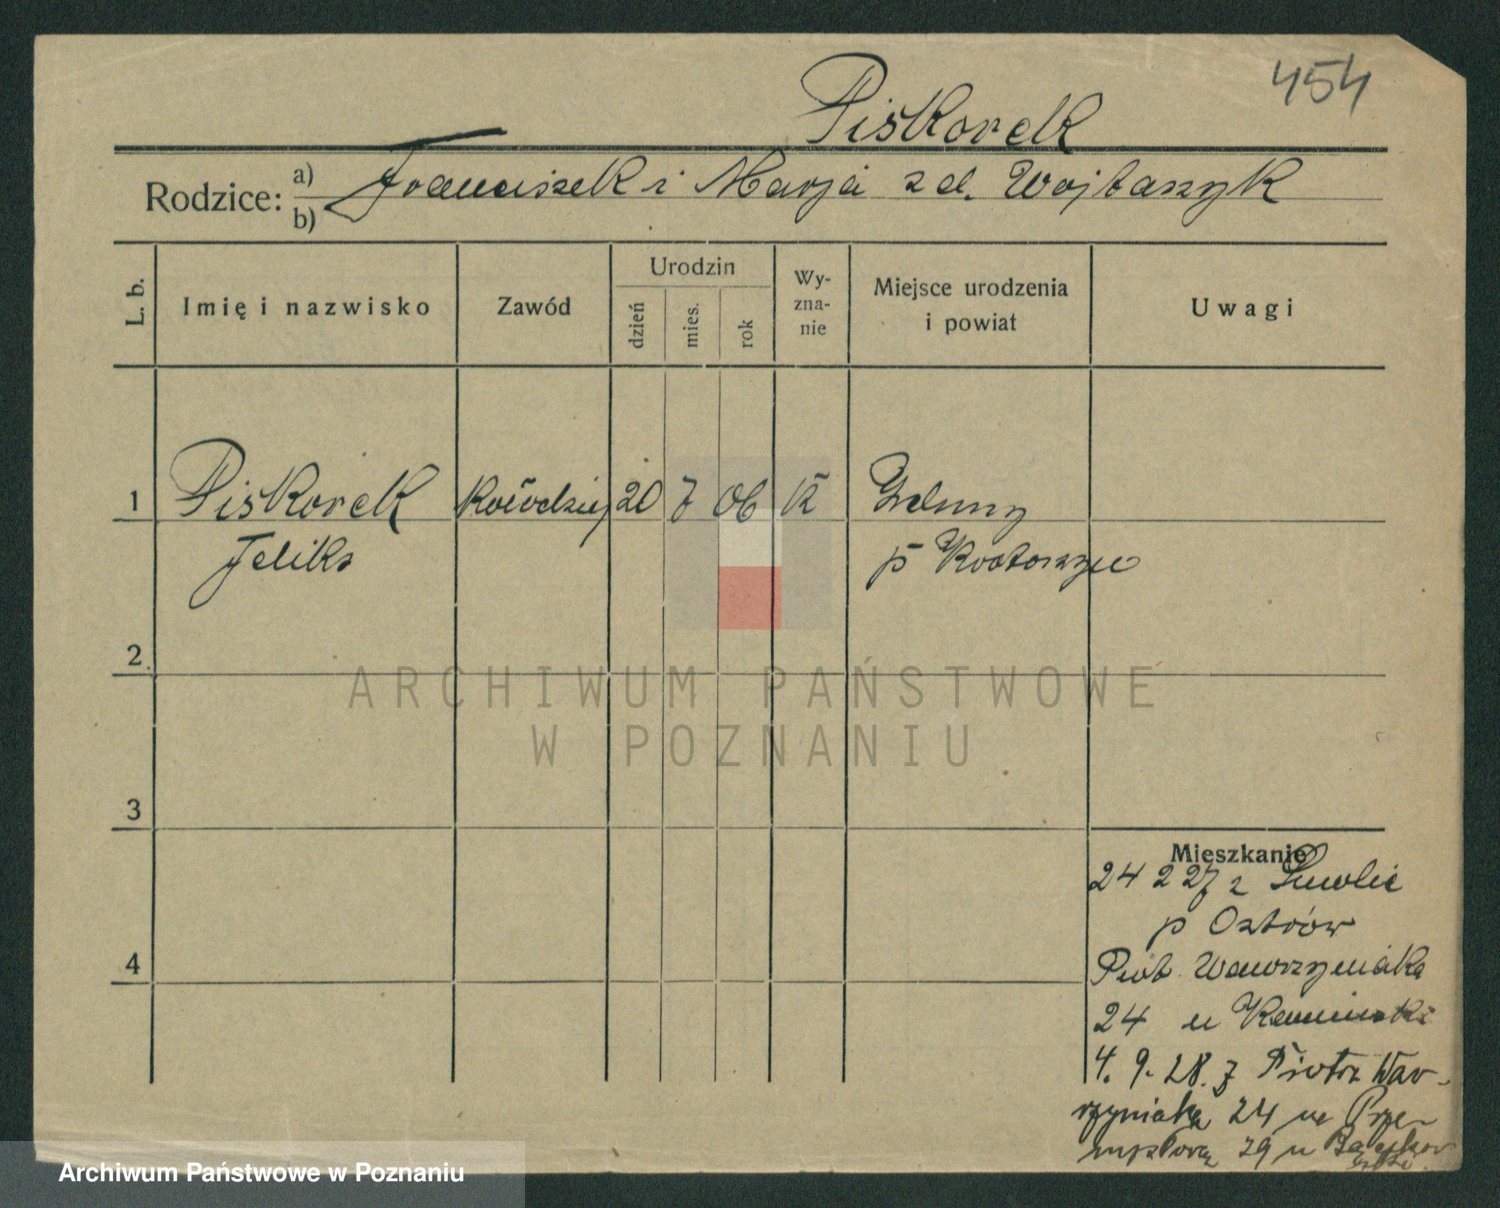 454
Piskorek
Rodzice: a) Franciszek i Marja z d. Wojtaszyk
b)
L. b.
Imię i nazwisko
Zawód
Urodzin
dzień
mies.
rok
Wy-
zna-
nie
Miejsce urodzenia
i powiat
Uwagi
1 Piskorek Kołodziej 20 7 06 K
Feliks p Krotoszyn
2
3
4
Mieszkanie
24 2 27 z
p Ostrów
Piotr Wawrzyniaka
24 u Kaminski
4. 9. 28. z Piotra Waw-
rzyniaka 24 na Prze-
mysłową 29 u
ARCHIWUM PAŃSTWOWE
W POZNANIU
Archiwum Państwowe w Poznaniu